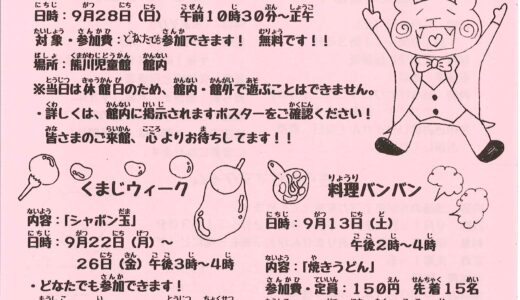 日時：9月28日（日）　午前10時30分～正午
対象・参加費：どなたでも参加できます！　無料です！！
場所：熊川児童館　館内
※当日は休館日のため、館内・館外で遊ぶことはできません。
・詳しくは、館内に掲示されますポスターをご確認ください！
皆さまのご来館、心よりお待ちしてます！！
くまじウィーク
内容：「シャボン玉」
日時：9月22日（月）～
26日（金）午後3時～4時
・どなたでも参加できます！
料理バンバン
日時：9月13日（土）
午後2時～4時
内容：「焼きうどん」
参加費・定員：150円　先着15名